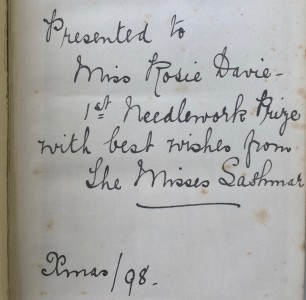 Presented to
Miss Rosie Davie -
1st Needlework Prize
with best wishes from
The Misses Sashmar
Xmas/98.